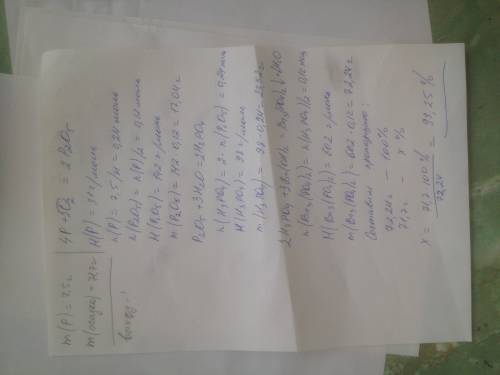 m(P) = 7,5г
m(осадка) = 71,7г
выход - ?
4P + 5O2 = 2P2O5
M(P) = 31 г/моль
n(P) = 7,5/31 = 0,24 моль
n(P2O5) = n(P)/2 = 0,12 моль
M(P2O5) = 142 г/моль
m(P2O5) = 142 · 0,12 = 17,04 г
P2O5 + 3H2O = 2H3PO4
n(H3PO4) = 2 · n(P2O5) = 0,24 моль
M(H3PO4) = 98 г/моль
m(H3PO4) = 98 · 0,24 = 23,52 г
2H3PO4 + 3Ba(OH)2 = Ba3(PO4)2↓ + 6H2O
n(Ba3(PO4)2) = n(H3PO4)/2 = 0,12 моль
M(Ba3(PO4)2) = 602 г/моль
m(Ba3(PO4)2) = 602 · 0,12 = 72,24 г
Составим пропорцию:
72,24г - 100%
71,7г - x %
x = 71,7·100% / 72,24 = 99,25 %